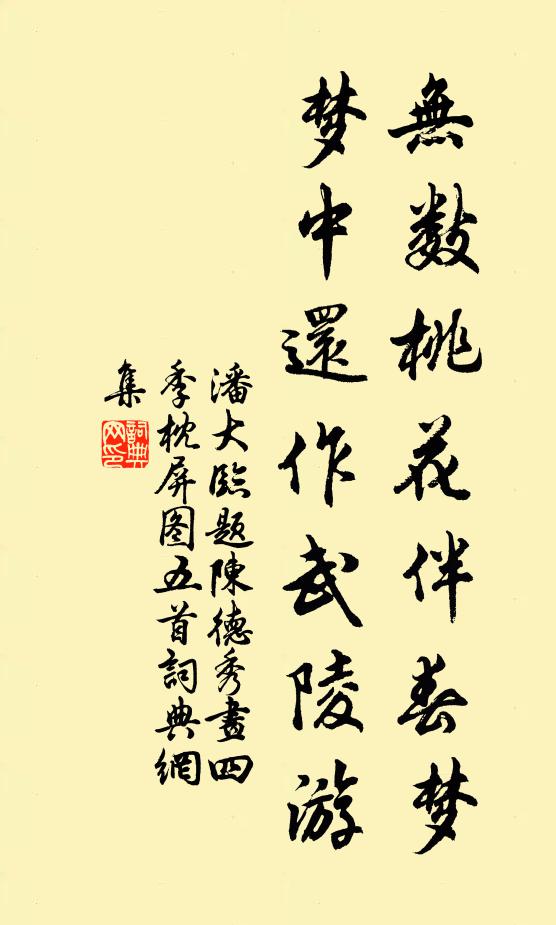 無數桃花伴春梦
梦中還作武陵游
潘大臨題陳德秀畫四
季枕屏图五首詞典網
集
詞典
网印